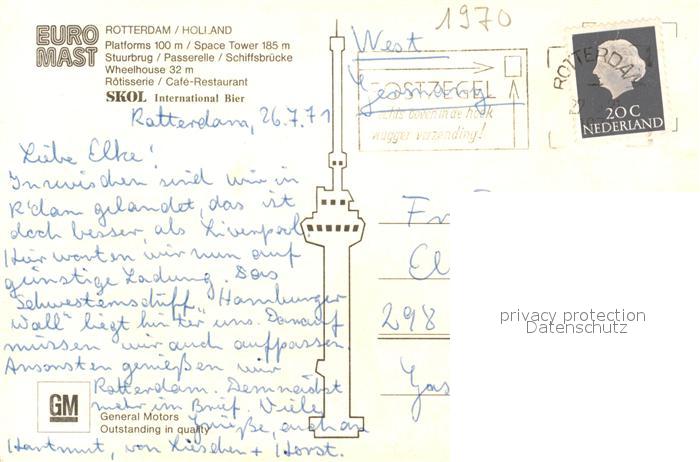 1970
EURO MAST
ROTTERDAM / HOLLAND
Platforms 100 m / Space Tower 185 m
Stuurbrug / Passerelle / Schiffsbrücke
Wheelhouse 32 m
Rôtisserie / Café-Restaurant
SKOL International Bier
West
Germany
POSTZEGEL
rechts boven in de hoek
vlugger verzending!
ROTTERDAM
20 C
NEDERLAND
Rotterdam, 26.7.71
Liebe Elke!
Inzwischen sind wir in
R'dam gelandet, das ist
doch besser als Liverpool.
Hier warten wir nun auf
günstige Ladung. Das
"Schwesternschiff" "Hamburger
Wall" liegt hinter uns. Darauf
müssen wir auch aufpassen.
Ansonsten genießen wir
Rotterdam. Demnächst
mehr im Brief. Viele
Grüße, auch an
Hartmut, von Lieschen + Horst.
GM
General Motors
Outstanding in quality
Fr
El
298
Gas
privacy protection
Datenschutz